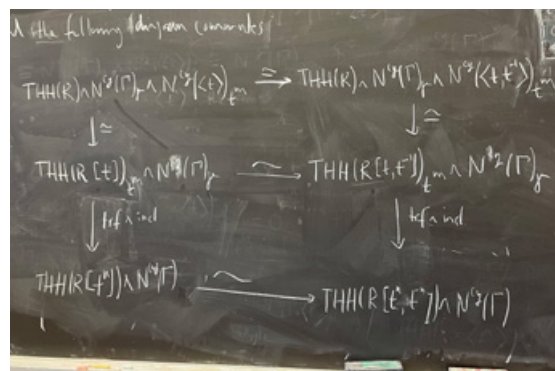 the following diagram commutes
THH(R) ∧ N^{cy}(Γ)_γ ∧ N^{cy}(⟨t⟩)_{t^m} ≅→ THH(R) ∧ N^{cy}(Γ)_γ ∧ N^{cy}(⟨t, t^{-1}⟩)_{t^m}
↓≃ ↓≃
THH(R[t])_{t^m} ∧ N^{cy}(Γ)_γ ∼→ THH(R[t,t^{-1}])_{t^m} ∧ N^{cy}(Γ)_γ
↓ trf ∧ incl ↓ trf ∧ incl
THH(R[t^n]) ∧ N^{cy}(Γ) ∼→ THH(R[t^n, t^{-n}]) ∧ N^{cy}(Γ)